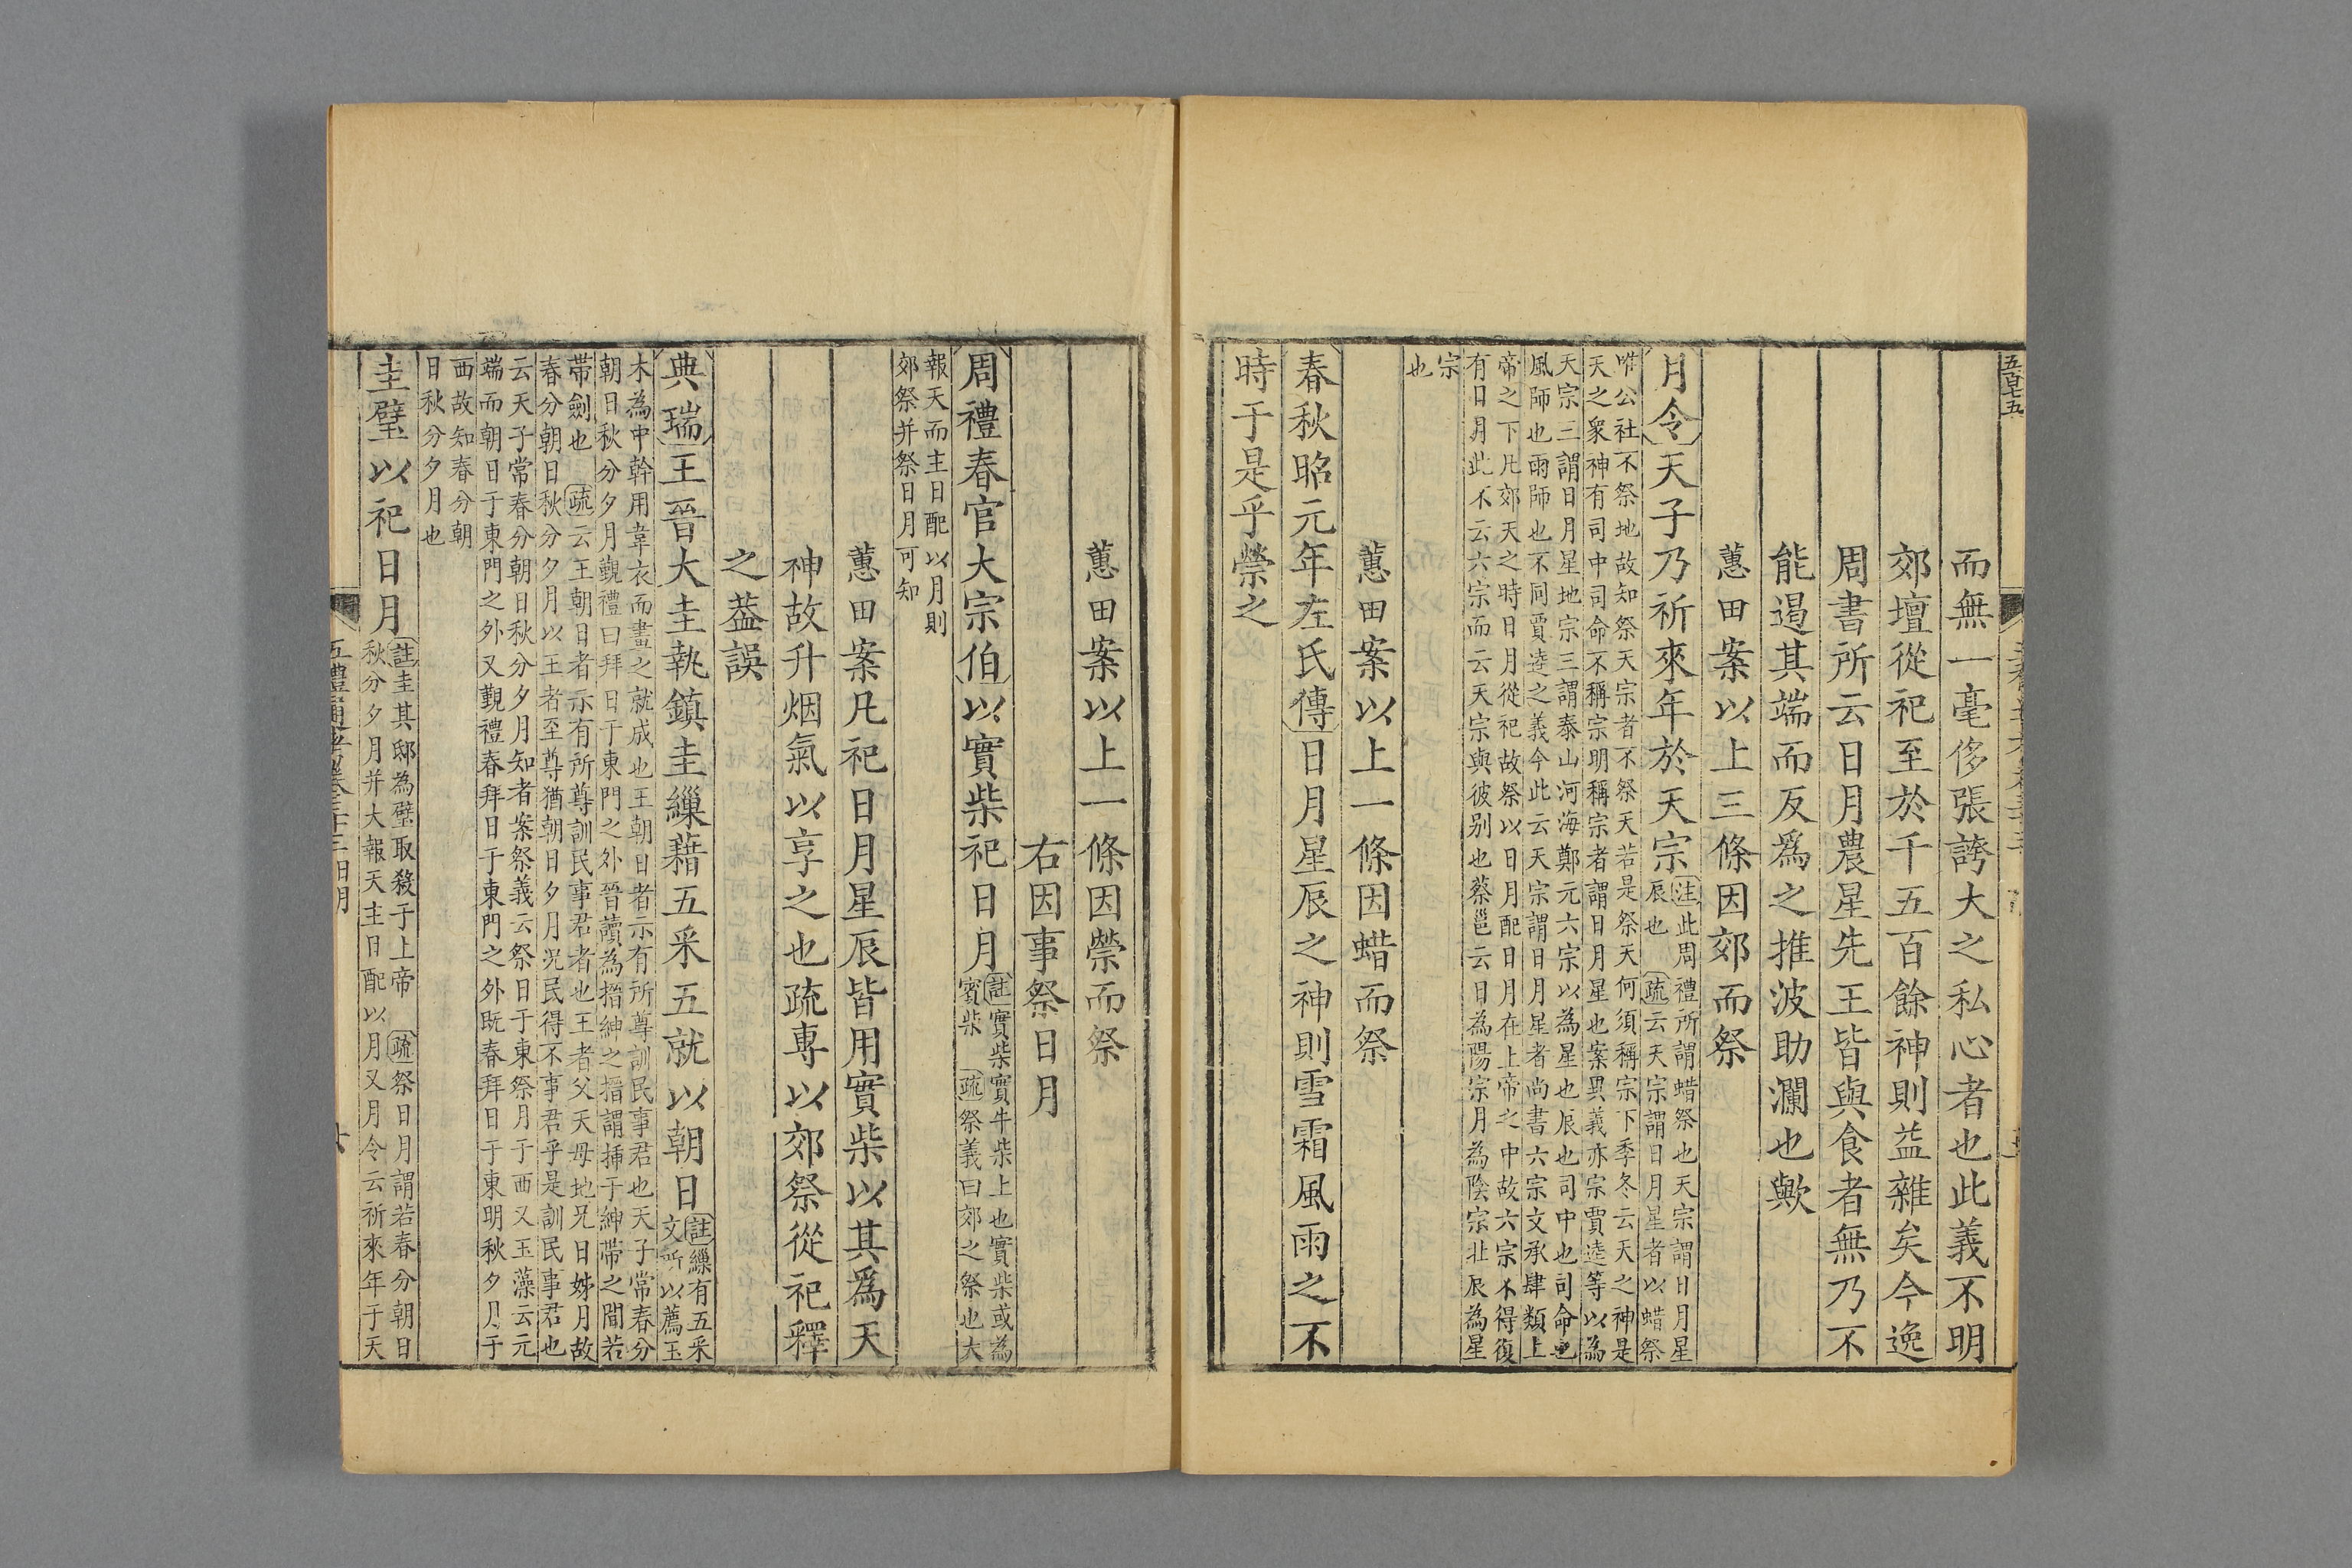 五百七五
而無一毫侈張誇大之私心者也此義不明
郊壇從祀至於千五百餘神則益雜矣今逸
周書所云日月農星先王皆與食者無乃不
能遏其端而反爲之推波助瀾也歟
蕙田案以上三條因郊而祭
月令天子乃祈來年於天宗
注此周禮所謂蜡祭也天宗謂日月星
辰也 疏云天宗謂日月星者以蜡祭
唯公社不祭地故知祭天宗者不祭天若是祭天何須稱宗下季冬云天之神是
天之衆神有司中司命不稱宗明稱宗者謂日月星也案異義亦宗賈逵等以為
天宗三謂日月星地宗三謂泰山河海鄭元六宗以為星也辰也司中也司命也
風師也雨師也不同賈逵之義今此云天宗謂日月星者尚書六宗文承肆類上
帝之下凡郊天之時日月從祀故祭以日月配日月在上帝之中故六宗不得復
有日月此不云六宗而云天宗與彼别也蔡邕云日為陽宗月為陰宗北辰為星
宗
也
蕙田案以上一條因蜡而祭
春秋昭元年左氏傳日月星辰之神則雪霜風雨之不
時于是乎禜之
蕙田案以上一條因禜而祭
右因事祭日月
周禮春官大宗伯以實柴祀日月
註實柴實牛柴上也實柴或為
賓柴 疏祭義曰郊之祭也大
報天而主日配以月則
郊祭并祭日月可知
蕙田案凡祀日月星辰皆用實柴以其爲天
神故升烟氣以享之也疏專以郊祭從祀釋
之葢誤
典瑞王晉大圭執鎮圭繅藉五采五就以朝日
註繅有五采
文所以薦玉
木為中幹用韋衣而畫之就成也王朝日者示有所尊訓民事君也天子常春分
朝日秋分夕月覲禮曰拜日于東門之外晉讀為搢紳之搢謂揷于紳帶之間若
帶劍也 疏云王朝日者示有所尊訓民事君者也王者父天母地兄日姊月故
春分朝日秋分夕月以王者至尊猶朝日夕月况民得不事君乎是訓民事君也
云天子常春分朝日秋分夕月知者案祭義云祭日于東祭月于西又玉藻云元
端而朝日于東門之外又覲禮春拜日于東門之外既春拜日于東明秋夕月于
西故知春分朝
日秋分夕月也
圭璧以祀日月
註圭其邸為璧取殺于上帝 疏祭日月謂若春分朝日
秋分夕月并大報天主日配以月又月令云祈來年于天
五禮通考卷三十三日月